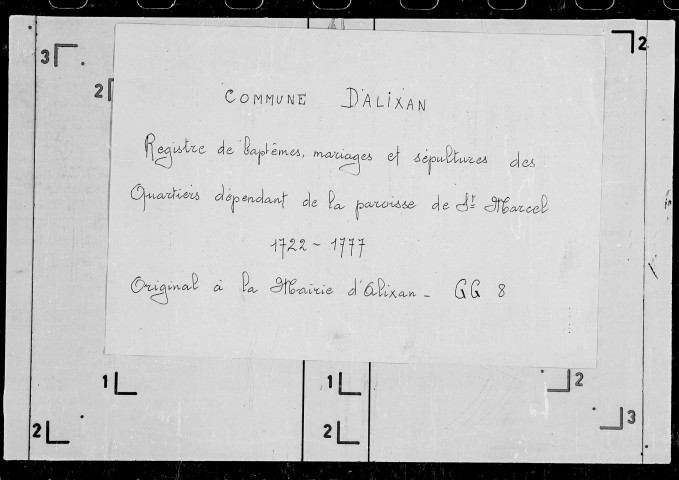 3
2
2
COMMUNE D'ALIXAN
Registre de baptêmes, mariages et sépultures des
Quartiers dépendant de la paroisse de St Marcel
1722 - 1777
Original à la Mairie d'Alixan - GG 8
1
1
2
2
2
3